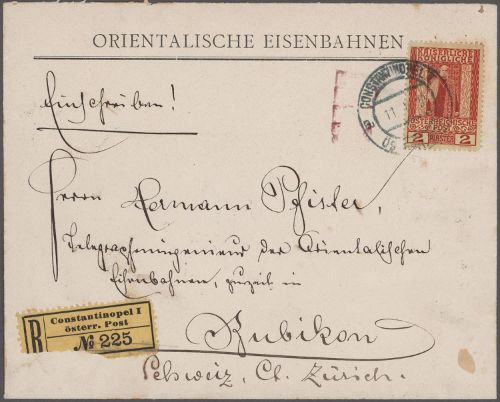 ORIENTALISCHE EISENBAHNEN
Einschreiben!
KAISERLICHE
KÖNIGLICHE
ÖSTERREICHISCHE
POST
2 PIASTER 2
CONSTANTINOPEL
11
Herrn Hermann Pfister,
Telegrapheningenieur der Orientalischen
Eisenbahnen, zuzeit in
Rubikon
Schweiz, Ct. Zürich.
R
Constantinopel I
österr. Post
№ 225